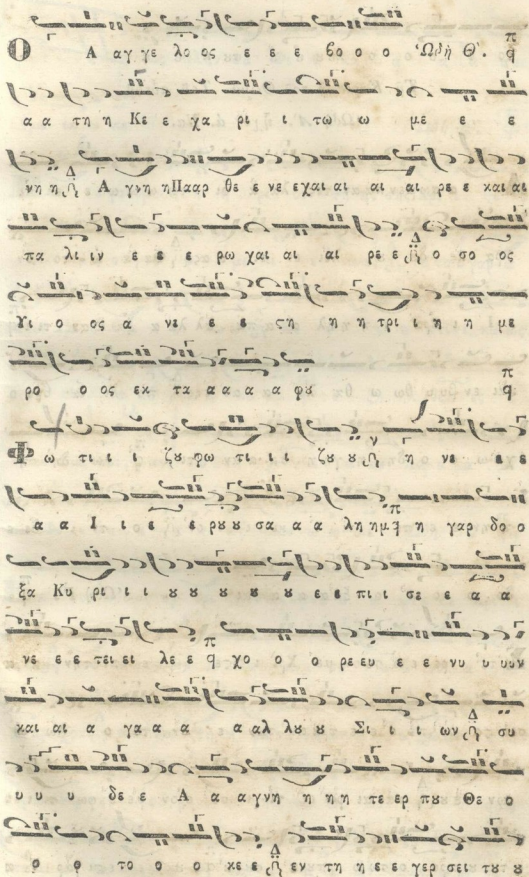 Ο Α αγ γε λο ος ε ε ε βο ο ο Ὠδὴ Θ΄. π q
α α τη η Κε ε χα ρι ι τω ω με ε ε
νη η Δ Α γνη η Πααρ θε ε νε εχαι αι αι αι ρε ε και αι
πα λι ιν ε ε ε ρω χαι αι αι ρε ε Δ ο σο ος
Υι ο ος α νε ε ε ϛη η η τρι ι η η με
ρο ο ος εκ τα α α α α φȣ π q
Φ ω τι ι ι ζȣ φω τι ι ι ζȣ ȣ ν η νε ε ε
α α Ι ι ε ε ρȣ ȣ σα α α λη ημ π η γαρ δο ο
ξα Κυ ρι ι ι ȣ ȣ ȣ ȣ ȣ ȣ ε ε πι ι σε ε α α
νε ε ε τει ει λε ε π q χο ο ο ο ρε ευ ε ε νυ υ υυν
και αι α γα α α α αλ λȣ ȣ Σι ι ι ων Δ συ
υ υ υ δε ε Α α αγνη η η η τε ερ πȣ Θε ο
ο ο ο το ο ο κε ε Δ εν τη η ε ε γερ σει τȣ ȣ